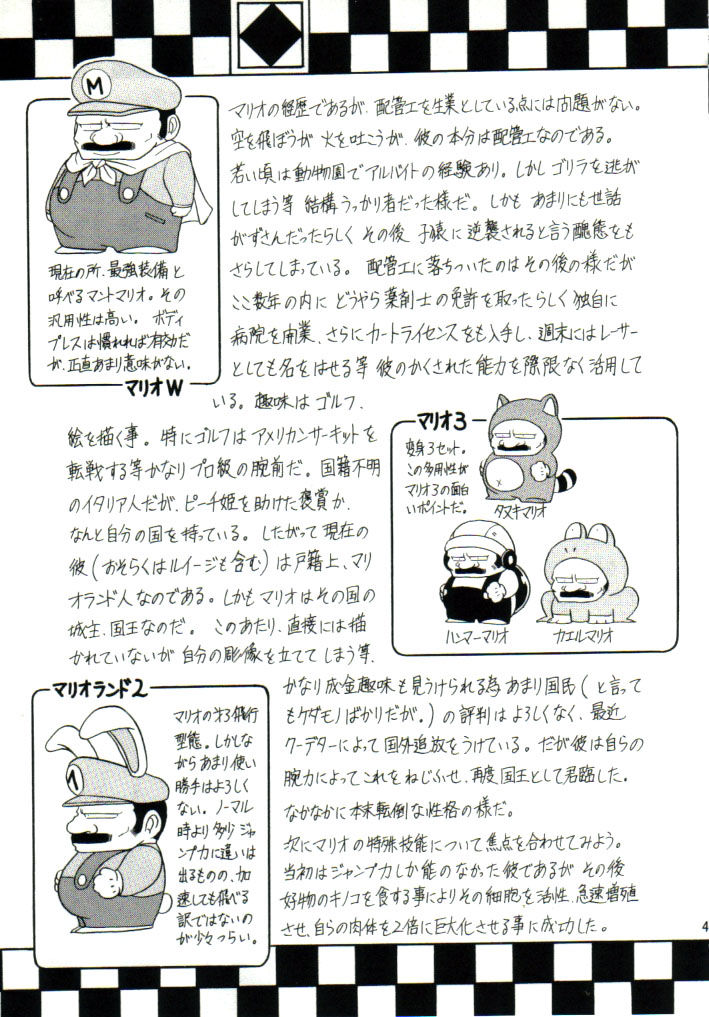 マリオの経歴であるが、配管工を生業としている点には問題がない。
空を飛ぼうが 火を吐こうが、彼の本分は配管工なのである。
若い頃は動物園でアルバイトの経験あり。しかしゴリラを逃が
してしまう等 結構うっかり者だった様だ。しかも あまりにも世話
がずさんだったらしく その後 子猿に逆襲されると言う醜態をも
さらしてしまっている。 配管工に落ちついたのはその後の様だが
ここ数年の内に どうやら薬剤士の免許を取ったらしく 独自に
病院を開業、さらにカートライセンスをも入手し、週末にはレーサー
としても名をはせる等 彼のかくされた能力を際限なく活用して
いる。趣味はゴルフ、
絵を描く事。特にゴルフはアメリカンサーキットを
転戦する等かなりプロ級の腕前だ。国籍不明
のイタリア人だが、ピーチ姫を助けた褒賞か、
なんと自分の国を持っている。したがって現在の
彼(おそらくはルイージも含む)は戸籍上、マリ
オランド人なのである。しかもマリオはその国の
城主、国王なのだ。 このあたり、直接には描
かれていないが 自分の彫像を立ててしまう等、
かなり成金趣味も見うけられる為 あまり国民(と言って
もケダモノばかりだが。)の評判はよろしくなく、最近
クーデターによって国外追放をうけている。だが彼は自らの
腕力によってこれをねじふせ、再度国王として君臨した。
なかなかに本末転倒な性格の様だ。
次にマリオの特殊技能について焦点を合わせてみよう。
当初はジャンプ力しか能のなかった彼であるが その後
好物のキノコを食する事によりその細胞を活性、急速増殖
させ、自らの肉体を2倍に巨大化させる事に成功した。
M
現在の所、最強装備と
呼べるマントマリオ。その
汎用性は高い。 ボディ
プレスは慣れれば有効だ
が、正直あまり意味がない。
マリオW
マリオ3
変身3セット。
この多用性が
マリオ3の面白
いポイントだ。
タヌキマリオ
ハンマーマリオ
カエルマリオ
マリオランド2
マリオの第3飛行
型態。しかしな
がらあまり使い
勝手はよろしく
ない。ノーマル
時より多少ジャ
ンプ力に違いは
出るものの、加
速しても飛べる
訳ではないの
が少々つらい。
4